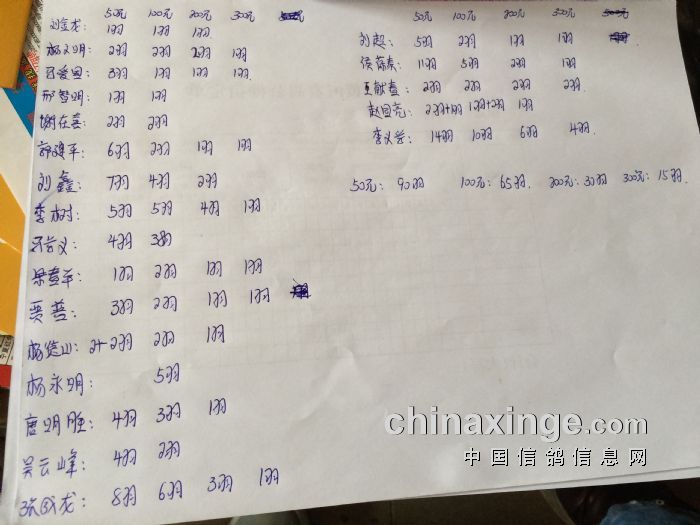 50元 100元 200元 300元
刘金龙: 1羽 1羽 1羽
杨永明: 2羽 2羽 2羽 1羽
3羽 1羽 1羽 1羽
邢智明: 1羽 1羽
谢在喜: 2羽 2羽
6羽 2羽 1羽 1羽
刘鑫: 7羽 4羽 2羽
李树: 5羽 5羽 4羽 1羽
4羽 3羽
1羽 2羽 1羽 1羽
贾善: 3羽 2羽 1羽 1羽
2+2羽 2羽 1羽
杨永明: 5羽
唐明胜: 4羽 3羽 1羽
吴云峰: 4羽 2羽
8羽 6羽 3羽 1羽
50元 100元 200元 300元
刘超: 5羽 2羽 1羽 1羽
11羽 5羽 2羽 1羽
王献春: 2羽 2羽 2羽 2羽
赵国亮: 2羽+1羽 1羽+2羽 1羽
李义兴: 14羽 10羽 6羽 4羽.
50元: 90羽 100元: 65羽. 200元: 31羽 300元: 15羽.
chinaxinge.com
中国信鸽信息网